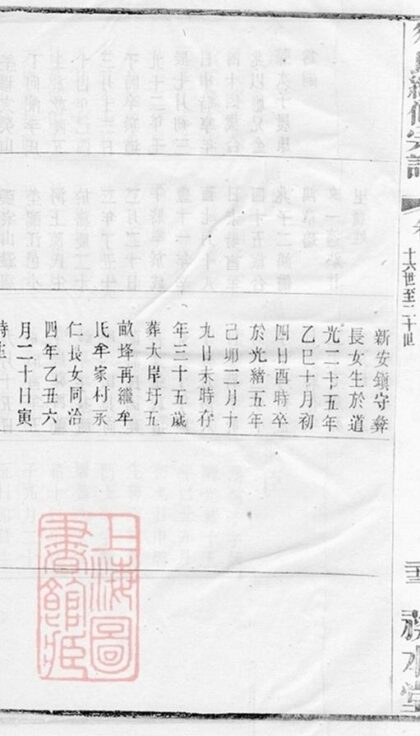 續修宗譜
十六世至二十世
本堂
新安鎮守彝
長女生於道
光二十五年
乙巳十月初
四日酉時卒
於光緒五年
己卯二月十
九日未時存
年三十五歲
葬大岸圩五
畝埄再繼牟
氏牟家村永
仁長女同治
四年乙丑六
月二十日寅
時生
上海圖
書館藏